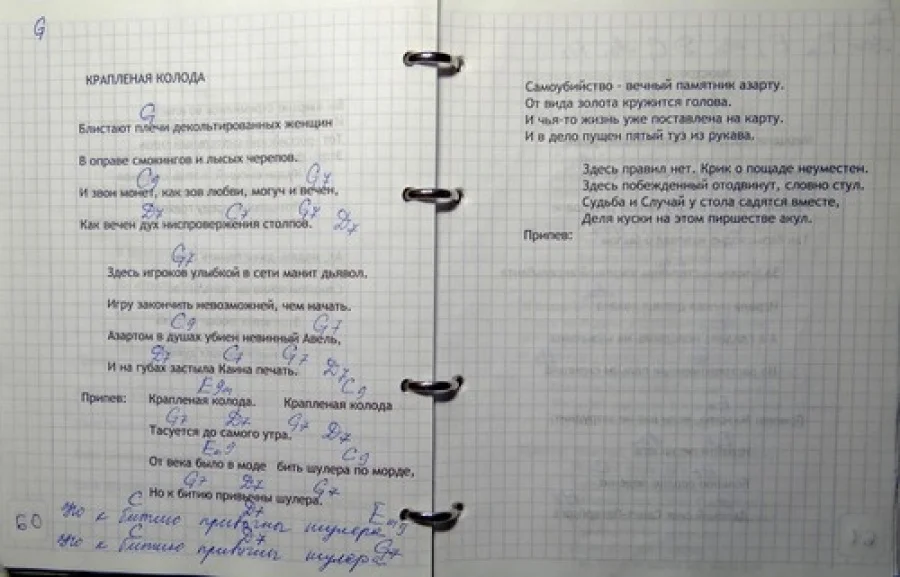 G
КРАПЛЕНАЯ КОЛОДА
G
Блистают плечи декольтированных женщин
В оправе смокингов и лысых черепов.
C9 G7
И звон монет, как зов любви, могуч и вечен,
D7 C7 G7 D7
Как вечен дух ниспровержения столпов.
G7
Здесь игроков улыбкой в сети манит дьявол.
Игру закончить невозможней, чем начать.
C9 G7
Азартом в душах убиен невинный Авель,
D7 C7 G7 D7
И на губах застыла Каина печать.
E9m C9
Припев: Крапленая колода. Крапленая колода
G7 D7 G7 D7
Тасуется до самого утра.
Em9 C9
От века было в моде бить шулера по морде,
G7 D7 G7
Но к битию привычны шулера.
C D7 Em9
Но к битию привычны шулера
C D7 G7
Но к битию привычны шулера
60
Самоубийство - вечный памятник азарту.
От вида золота кружится голова.
И чья-то жизнь уже поставлена на карту.
И в дело пущен пятый туз из рукава.
Здесь правил нет. Крик о пощаде неуместен.
Здесь побежденный отодвинут, словно стул.
Судьба и Случай у стола садятся вместе,
Деля куски на этом пиршестве акул.
Припев: